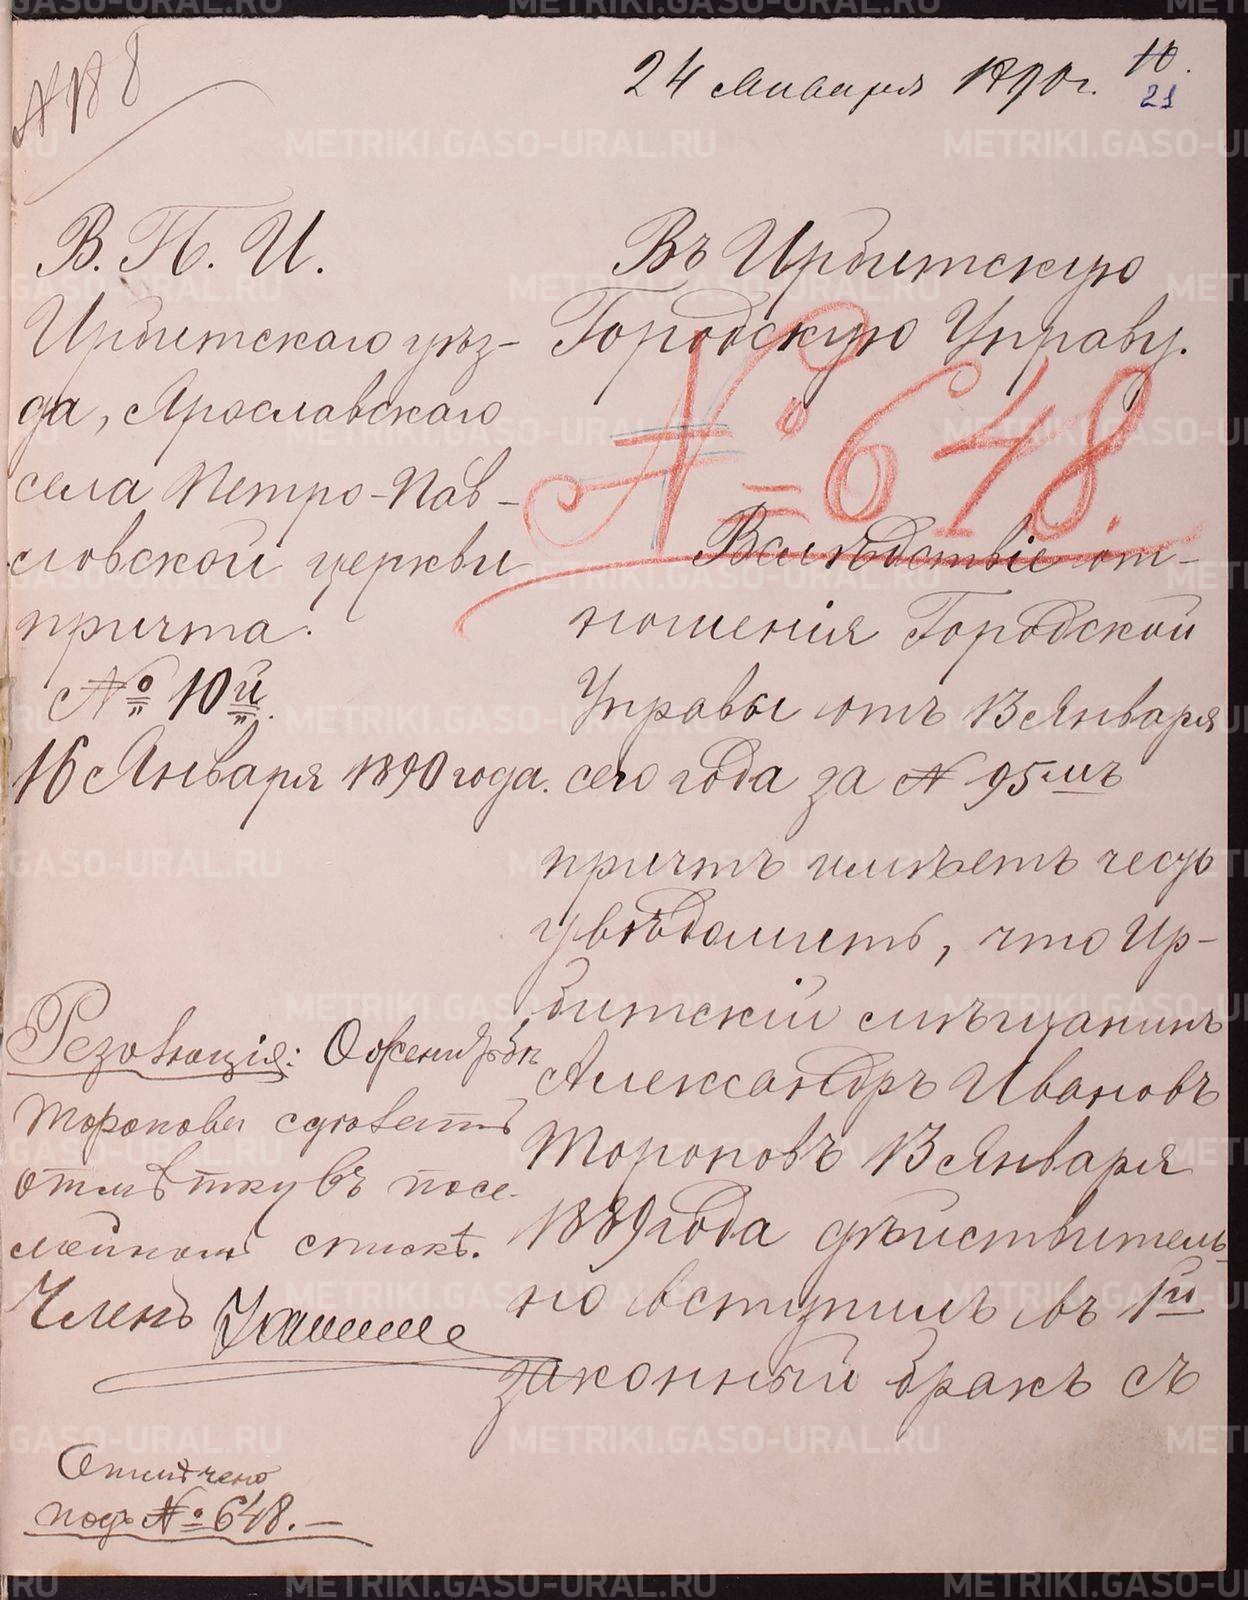 № 188
24 Января 1890 г.
10.
21
В. П. И.
Ирбитскаго уѣз-
да, Ярославскаго
села Петро-Пав-
ловской церкви
причта.
№ 10й.
16 Января 1890 года.
Въ Ирбитскую
Городскую Управу.
№ 648.
Вслѣдствіе от-
ношенія Городской
Управы отъ 13 Января
сего года за № 95мъ
причтъ имѣетъ чест
увѣдомить, что Ир-
битскій мѣщанинъ
Александръ Ивановъ
Тороповъ 13 Января
1889 года дѣйствитель-
но вступилъ въ 1й
законный бракъ съ
Резолюція: О
Торопова сдѣлать
отмѣтку въ посе-
мейномъ спискѣ.
Членъ
Отмѣчено
подъ № 648. —
METRIKI.GASO-URAL.RU